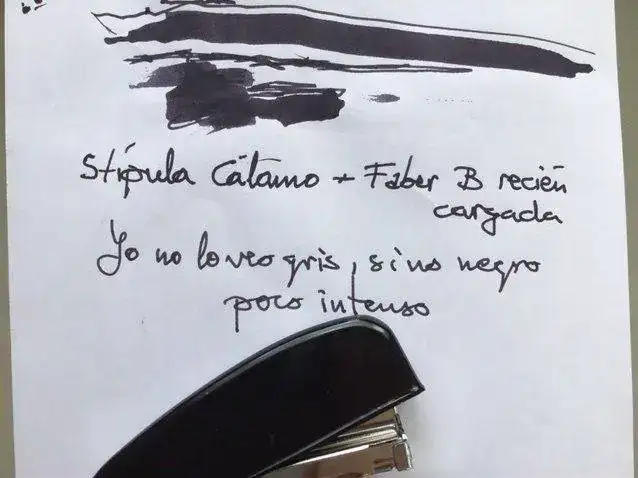 Stípula Cálamo + Faber B recién
cargada
Yo no lo veo gris, sino negro
poco intenso